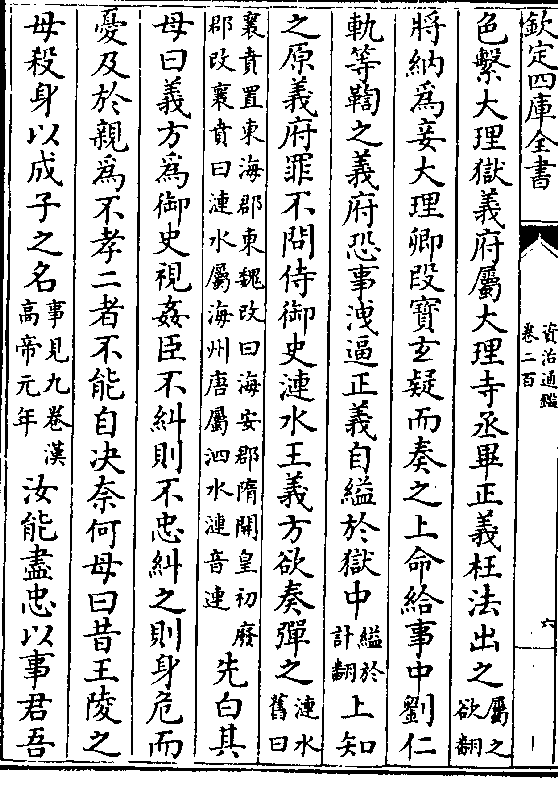 欽定四庫全書
資治通鑑
卷二百
六
色繫大理獄義府屬大理寺丞畢正義枉法出之屬之欲翻
將納為妾大理卿段寶玄疑而奏之上命給事中劉仁
軌等鞫之義府恐事洩逼正義自縊於獄中縊於計翻上知
之原義府罪不問侍御史漣水王義方欲奏彈之漣水舊曰
襄賁置東海郡東魏改曰海安郡隋開皇初廢郡改襄賁曰漣水屬海州唐屬泗水漣音連先白其
母曰義方為御史視姦臣不糾則不忠糾之則身危而
憂及於親為不孝二者不能自決奈何母曰昔王陵之
母殺身以成子之名事見九卷漢高帝元年汝能盡忠以事君吾